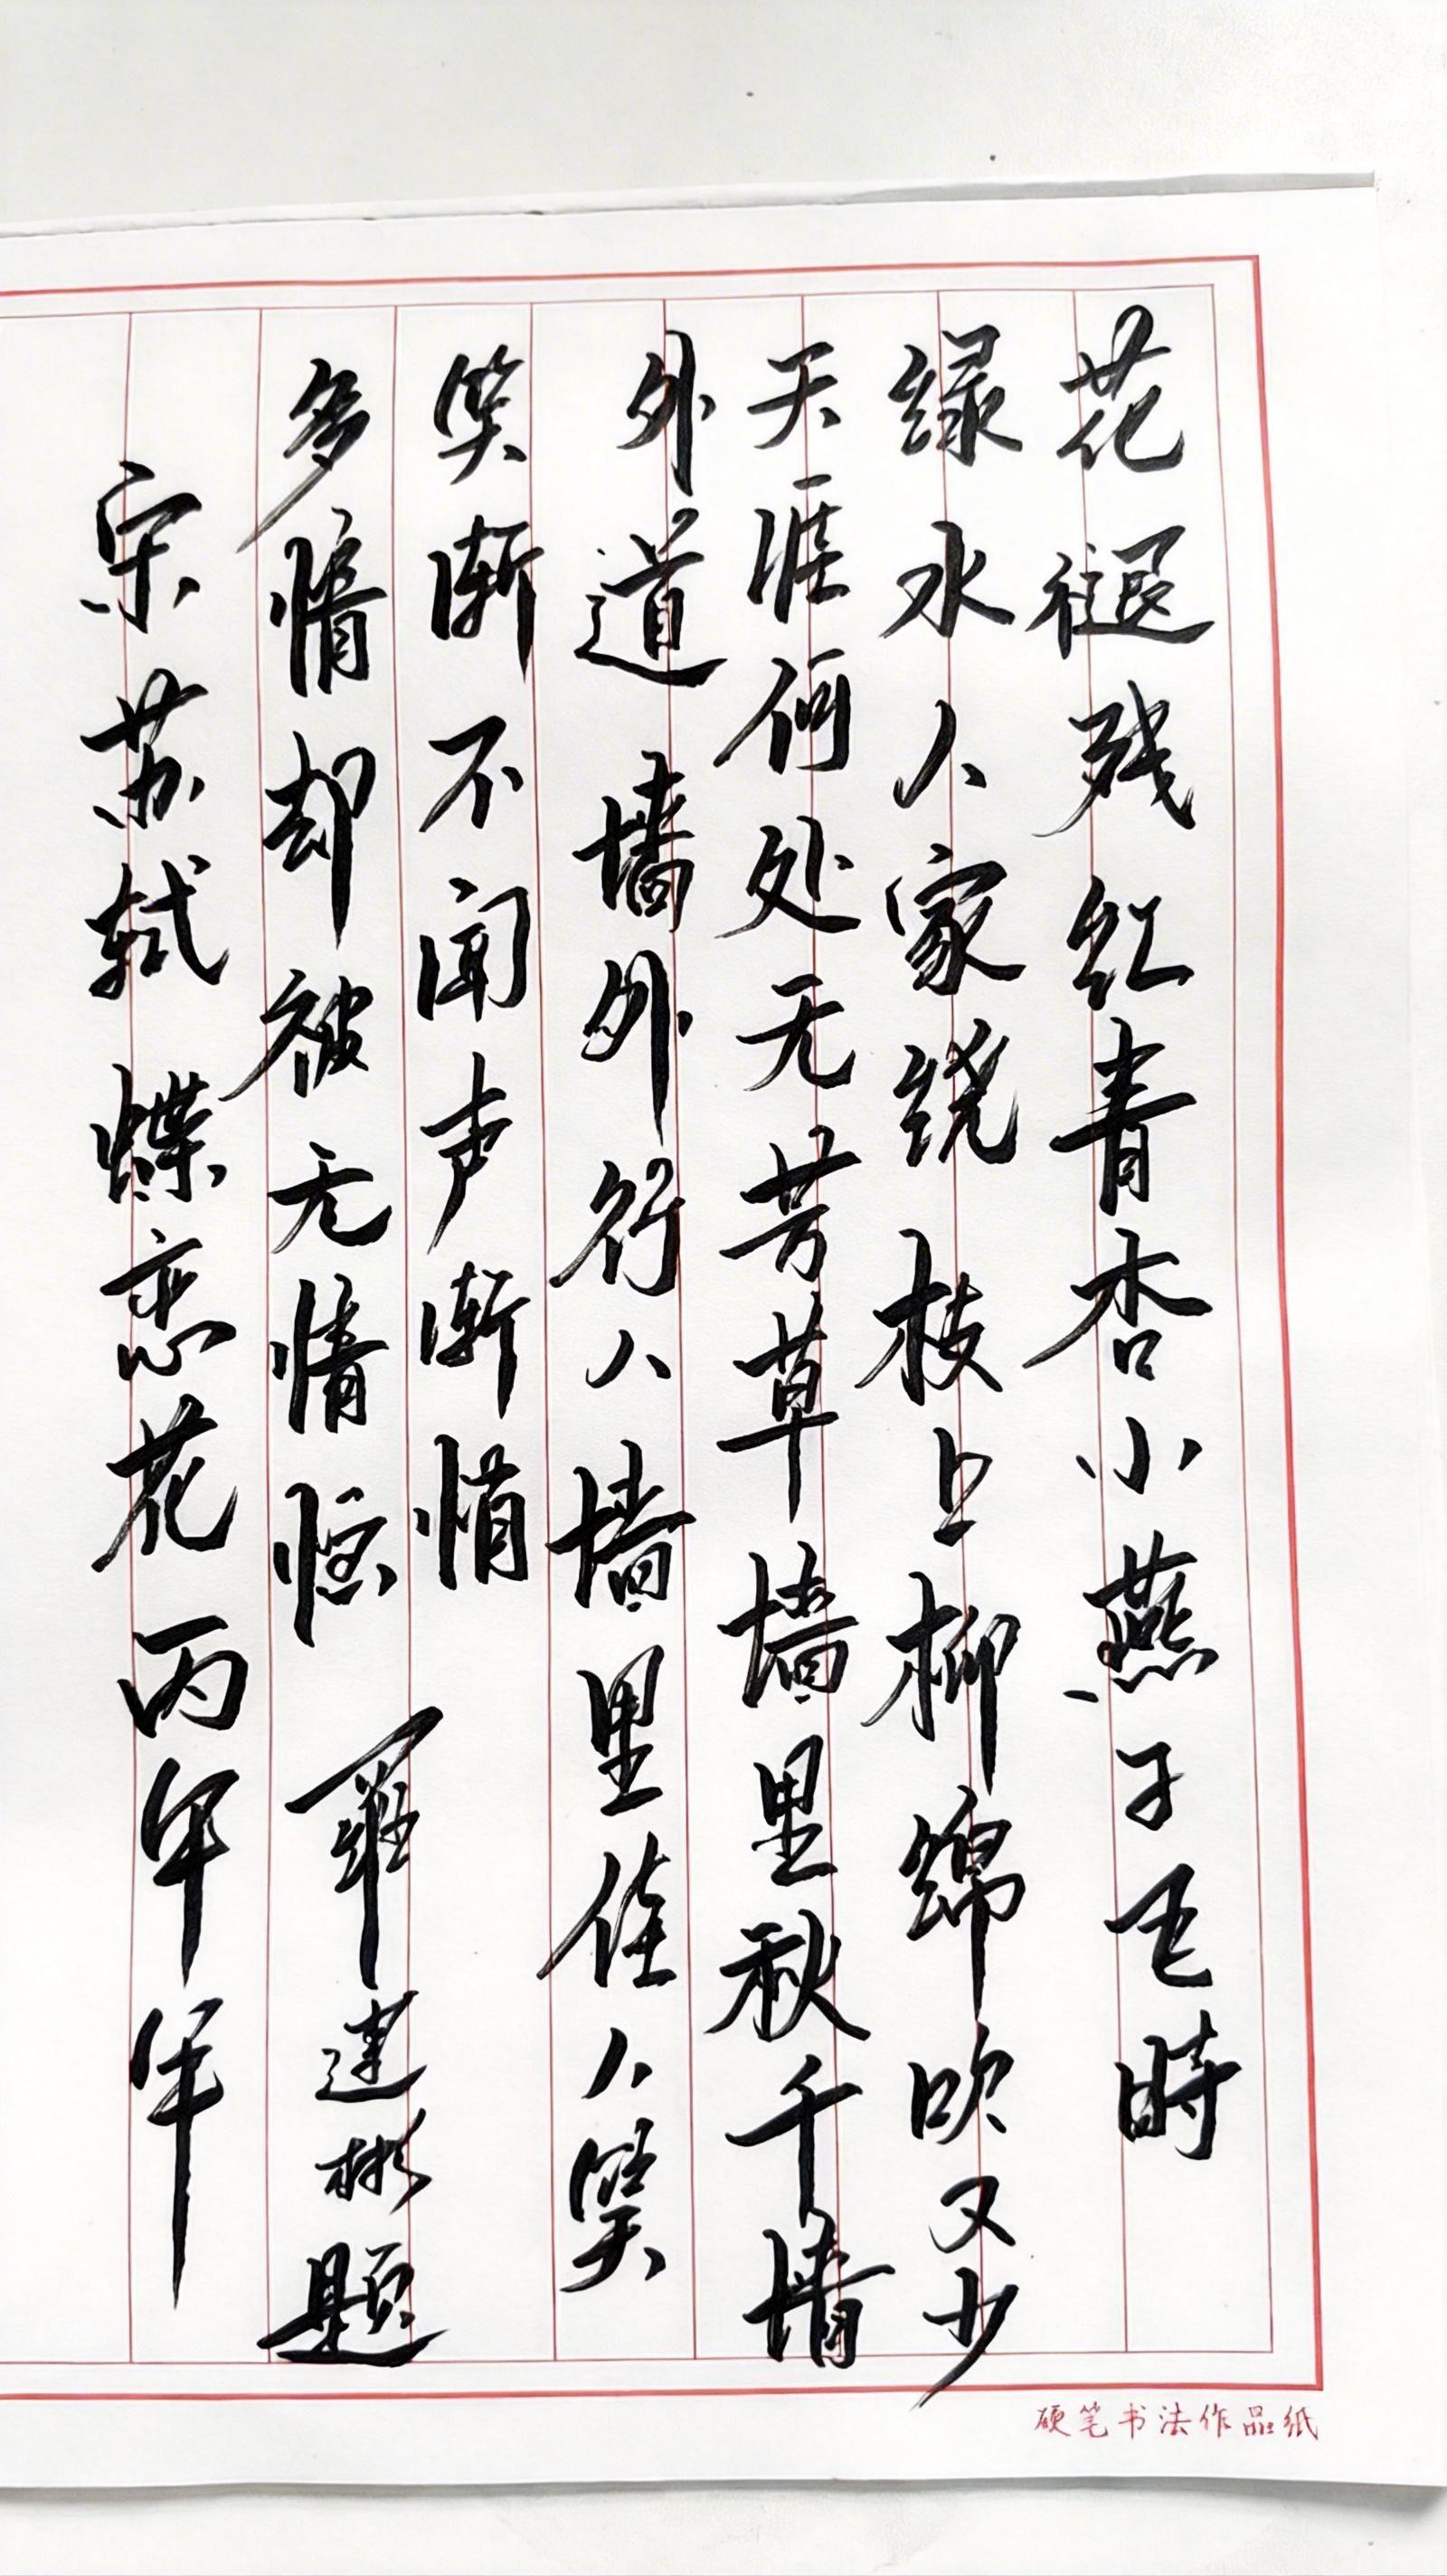 花褪残红青杏小燕子飞時
绿水人家绕枝上柳绵吹又少
天涯何处无芳草墙里秋千墙
外道墙外行人墙里佳人笑
笑渐不闻声渐悄
多情却被无情恼 罗建彬题
宋苏轼 蝶恋花 丙午年
硬笔书法作品纸